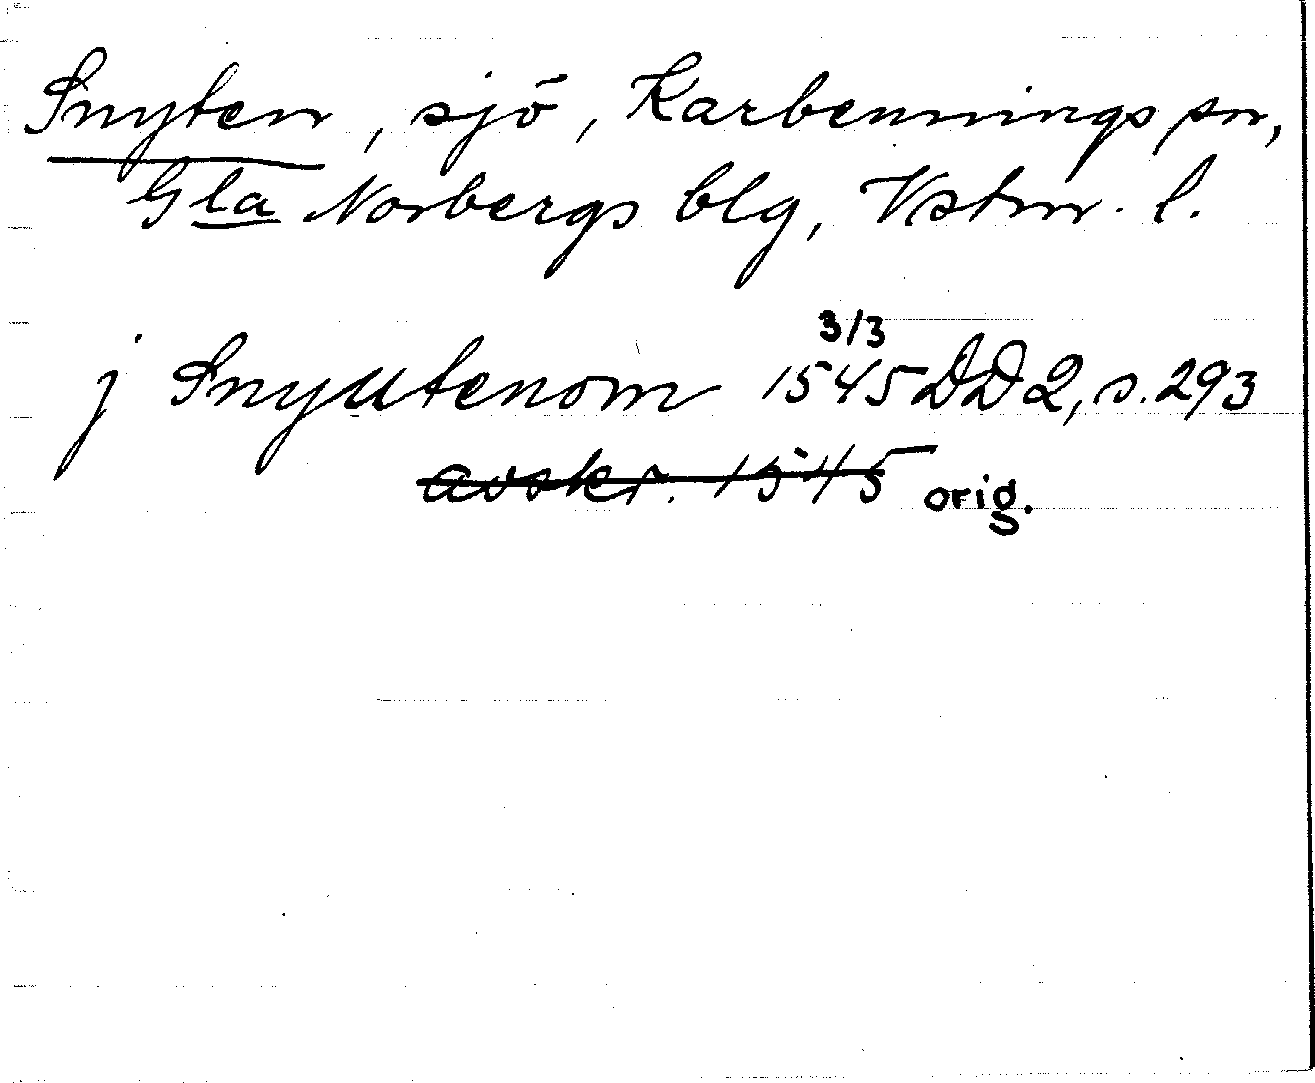 Snyten, sjö, Karbennings sn,
Gla Norbergs blg, Vstm. l.
3/3
j Snyutenom 1545 DD2, s. 293
avskr. 1545 orig.